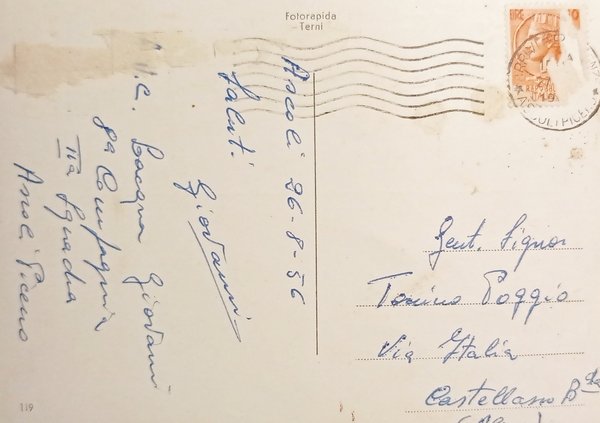 Fotorapida
Terni
LIRE 10
Ascoli 26-8-56
Saluti
Giovanni
Giovanni
8a Compagnia
IIa Squadra
Ascoli Piceno
Gent. Signor
Tonino Poggio
Via Italia
Castellano B da
119